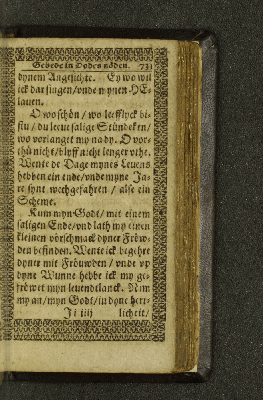 Gebede in Dodes nöden. 731
dynem Angesichte. Ey wo wil
ick dar singen/ vnde mynen HE-
Ο wo schön / wo leefflyck bi-
stu / du leeue salige Stündeken/
wo vorlanget my na dy. O vor-
thü nicht / blyff nicht lenger vthe.
Wente de Dage mynes Leuens
hebben ein ende/ vnde myne Ja-
re synt wechgefahren / alse ein
Scheme.
Kum myn Godt/ mit einem
saligen Ende/ vnd lath my einen
kleinen vörschmack dyner Fröw-
den befinden. Wente ick begehre
dyner mit Fröuwden / vnde vp
dyne Wunne hebbe ick my ge-
fröwet myn leuendelanck. Nim
my an/ myn Godt/ in dyne herr-
Ji iiij licheit/